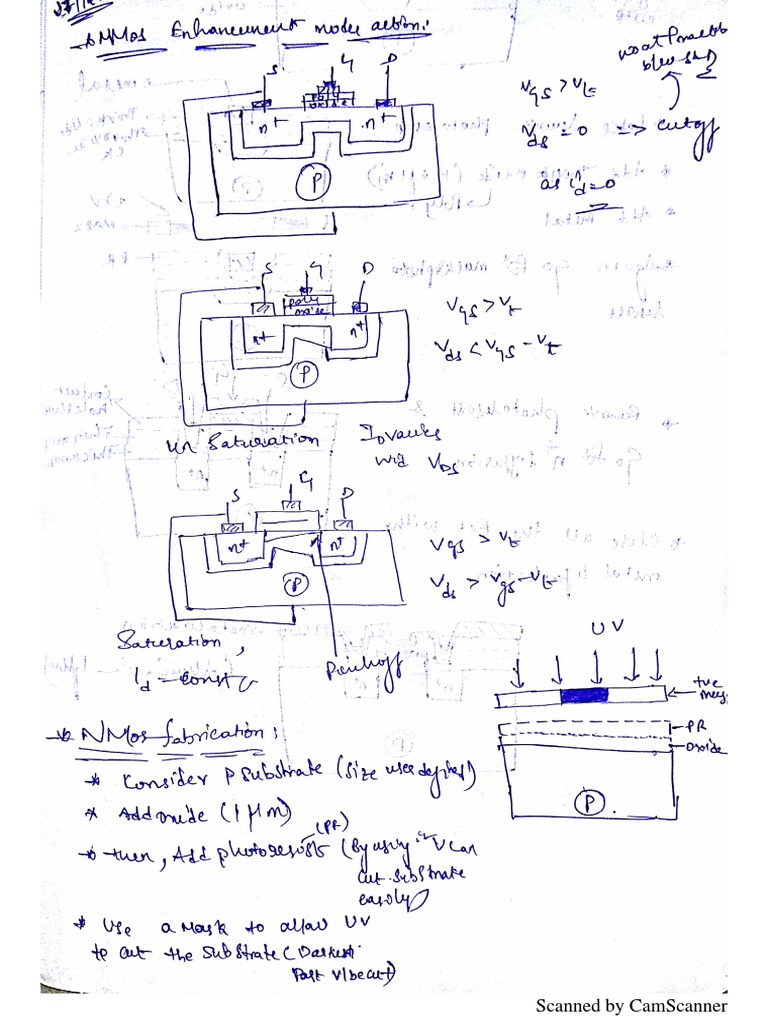 NMos Enhancement mode action:
S G D
n+ n+
P
Vgs > Vt
Vds = 0 => cutoff
as id = 0
S G D
Poly
oxide
n+ n+
P
Vgs > Vt
Vds < Vgs - Vt
un Saturation ID varies
with VDS
S G D
n+ n+
P
Vgs > Vt
Vds > Vgs - Vt
Saturation,
Id - const
Pinchoff
UV
+ve
PR
oxide
P
NMos fabrication:
* Consider P substrate (size user defined)
* Add oxide (1 μm)
then, Add photoresist (PR) (By using it U can
cut substrate
easily)
* Use a mask to allow UV
to cut the substrate (Darkest
Part v/be cut)
Scanned by CamScanner